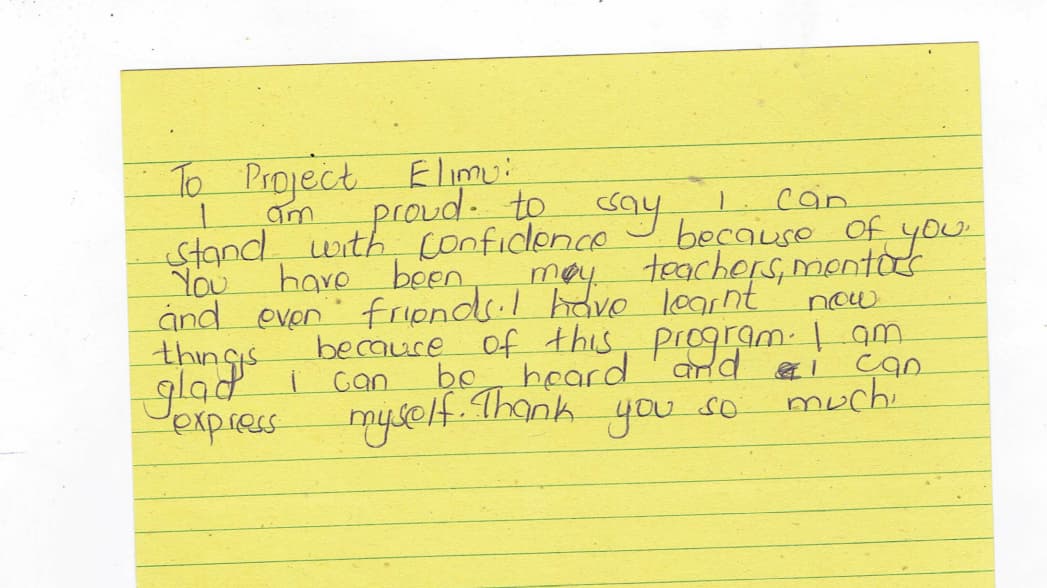 To Project Elimu:
I am proud. to say I can
stand with confidence because of you.
You have been my teachers, mentors
and even friends. I have learnt new
things because of this program. I am
glad i can be heard and i can
express myself. Thank you so much.